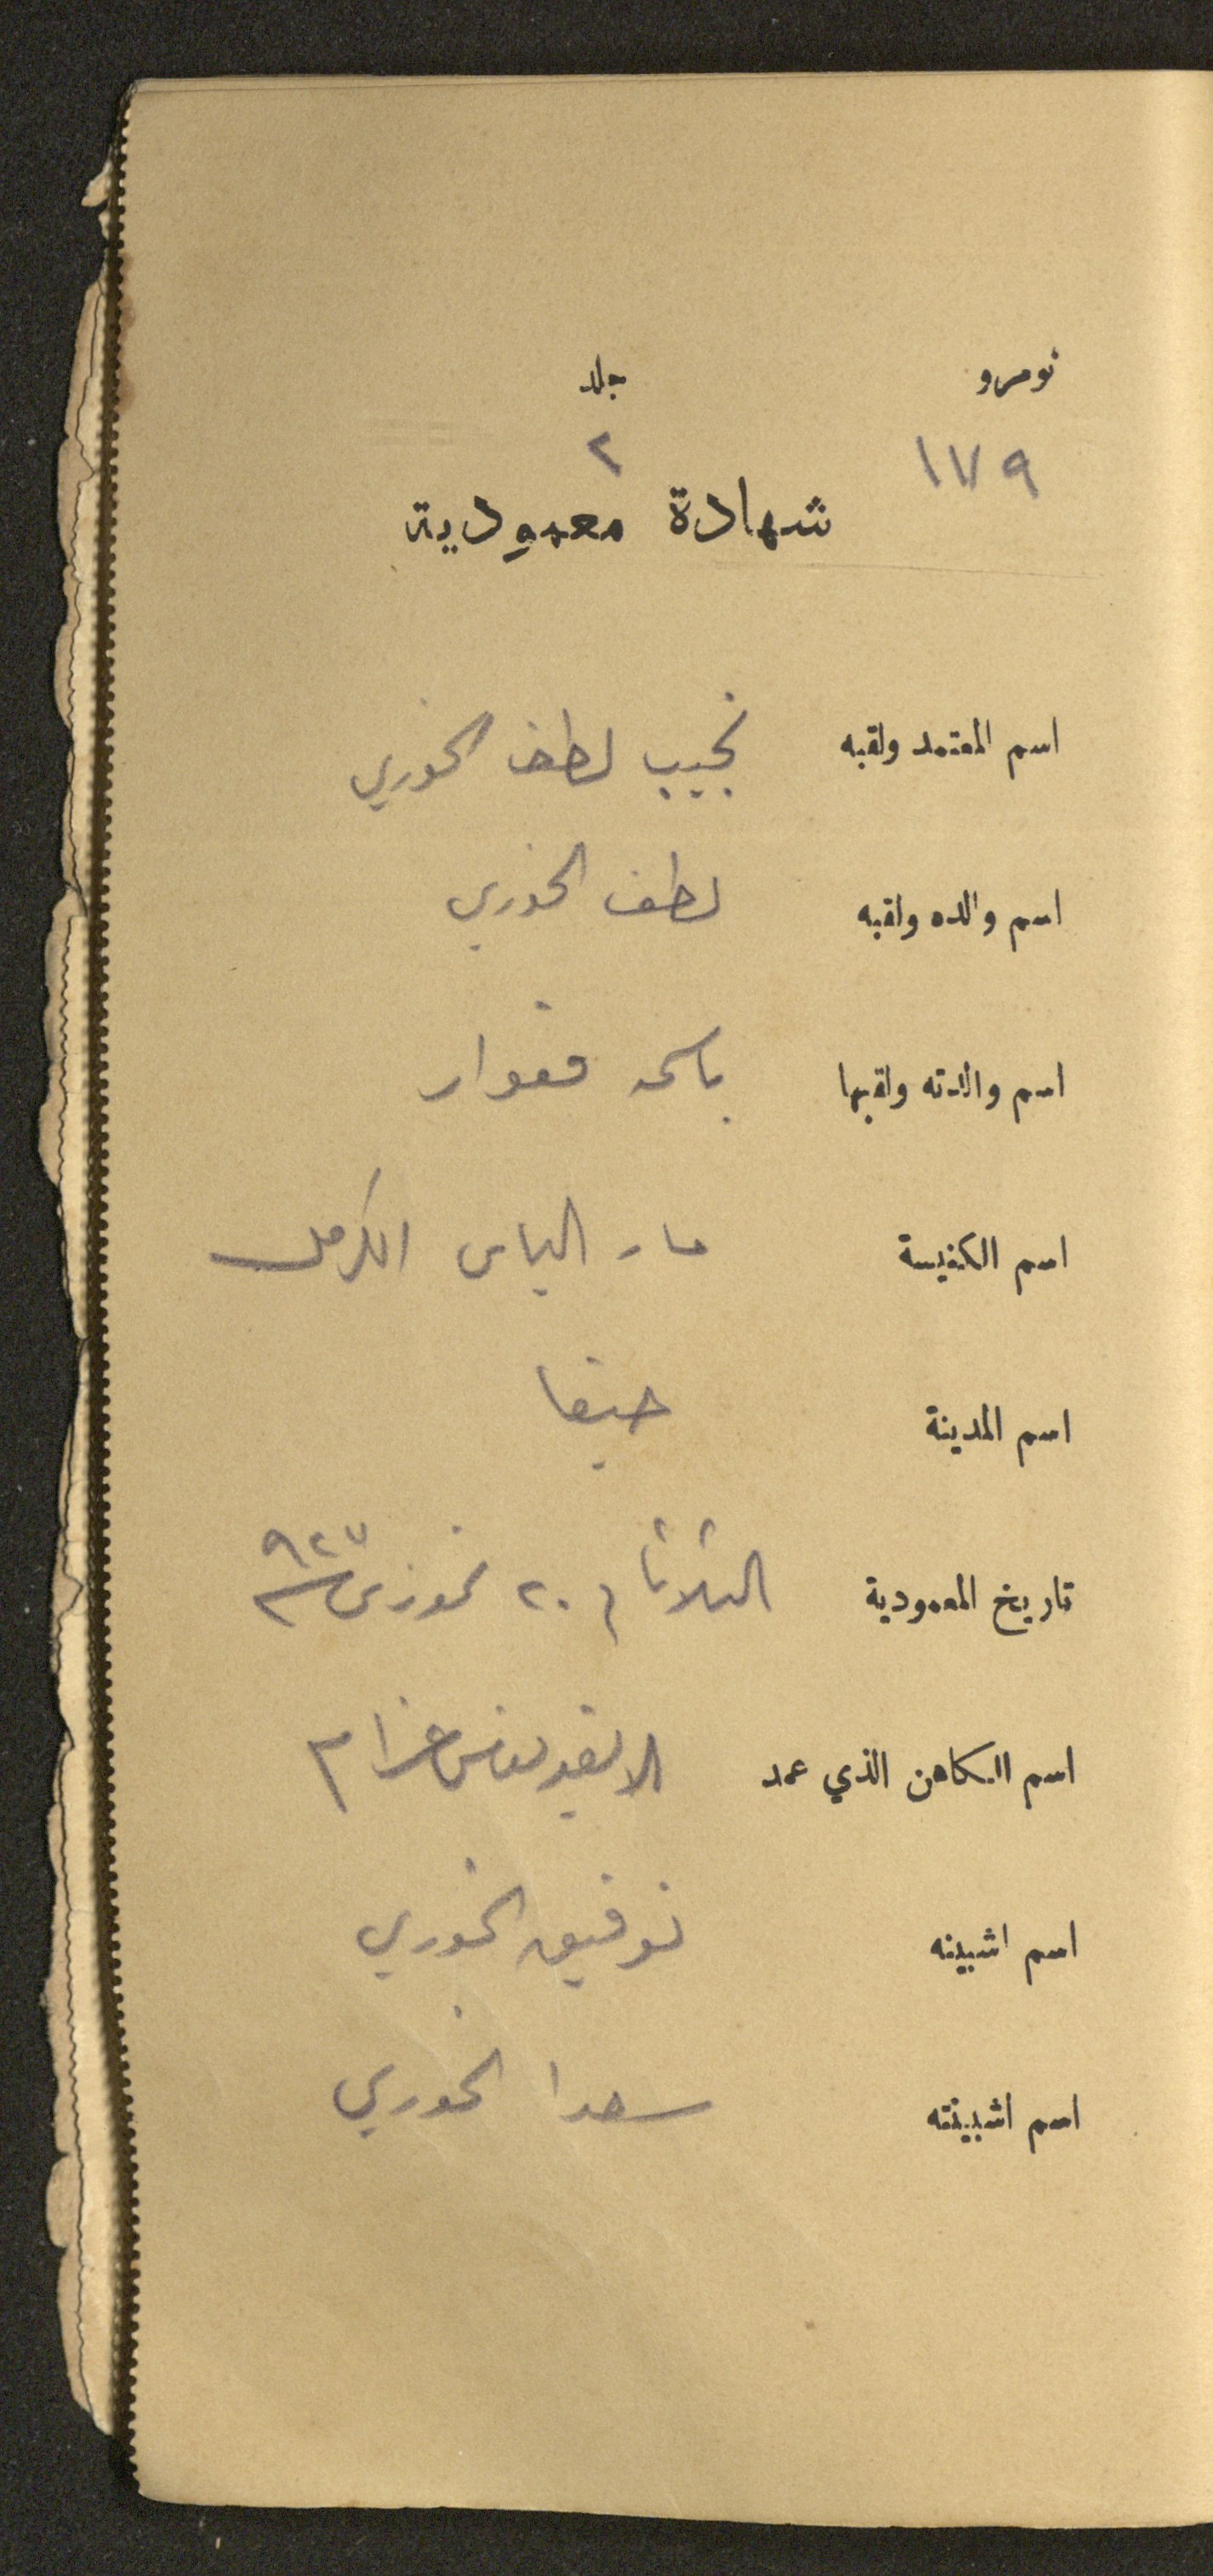 نومرو جلد
١٧٩ ٢
شهادة معمودية
اسم المعتمد ولقبه نجيب لطف الخوري
اسم والده ولقبه لطف الخوري
اسم والدته ولقبها باسمه قعوار
اسم الكنيسة مار الياس الكرمل
اسم المدينة حيفا
تاريخ المعمودية الثلاثا ٢٠ تموز ٩٢٧
اسم الكاهن الذي عمد
اسم اشبينه توفيق الخوري
اسم اشبينته سعدا الخوري